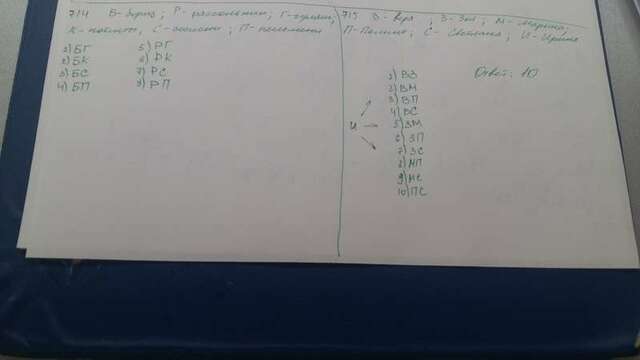 714 Б-борщ ; Р-рассольник ; Г-гуляш ;
К-котлеты ; С-сосиски ; П-пельмени
1) БГ
2) БК
3) БС
4) БП
5) РГ
6) РК
7) РС
8) РП
715 В-Вера ; З-Зоя ; М-Марина ;
П-Полина ; С-Светлана ; И-Ирина
И
1) ВЗ
2) ВМ
3) ВП
4) ВС
5) ЗМ
6) ЗП
7) ЗС
8) МП
9) МС
10) ПС
Ответ: 10